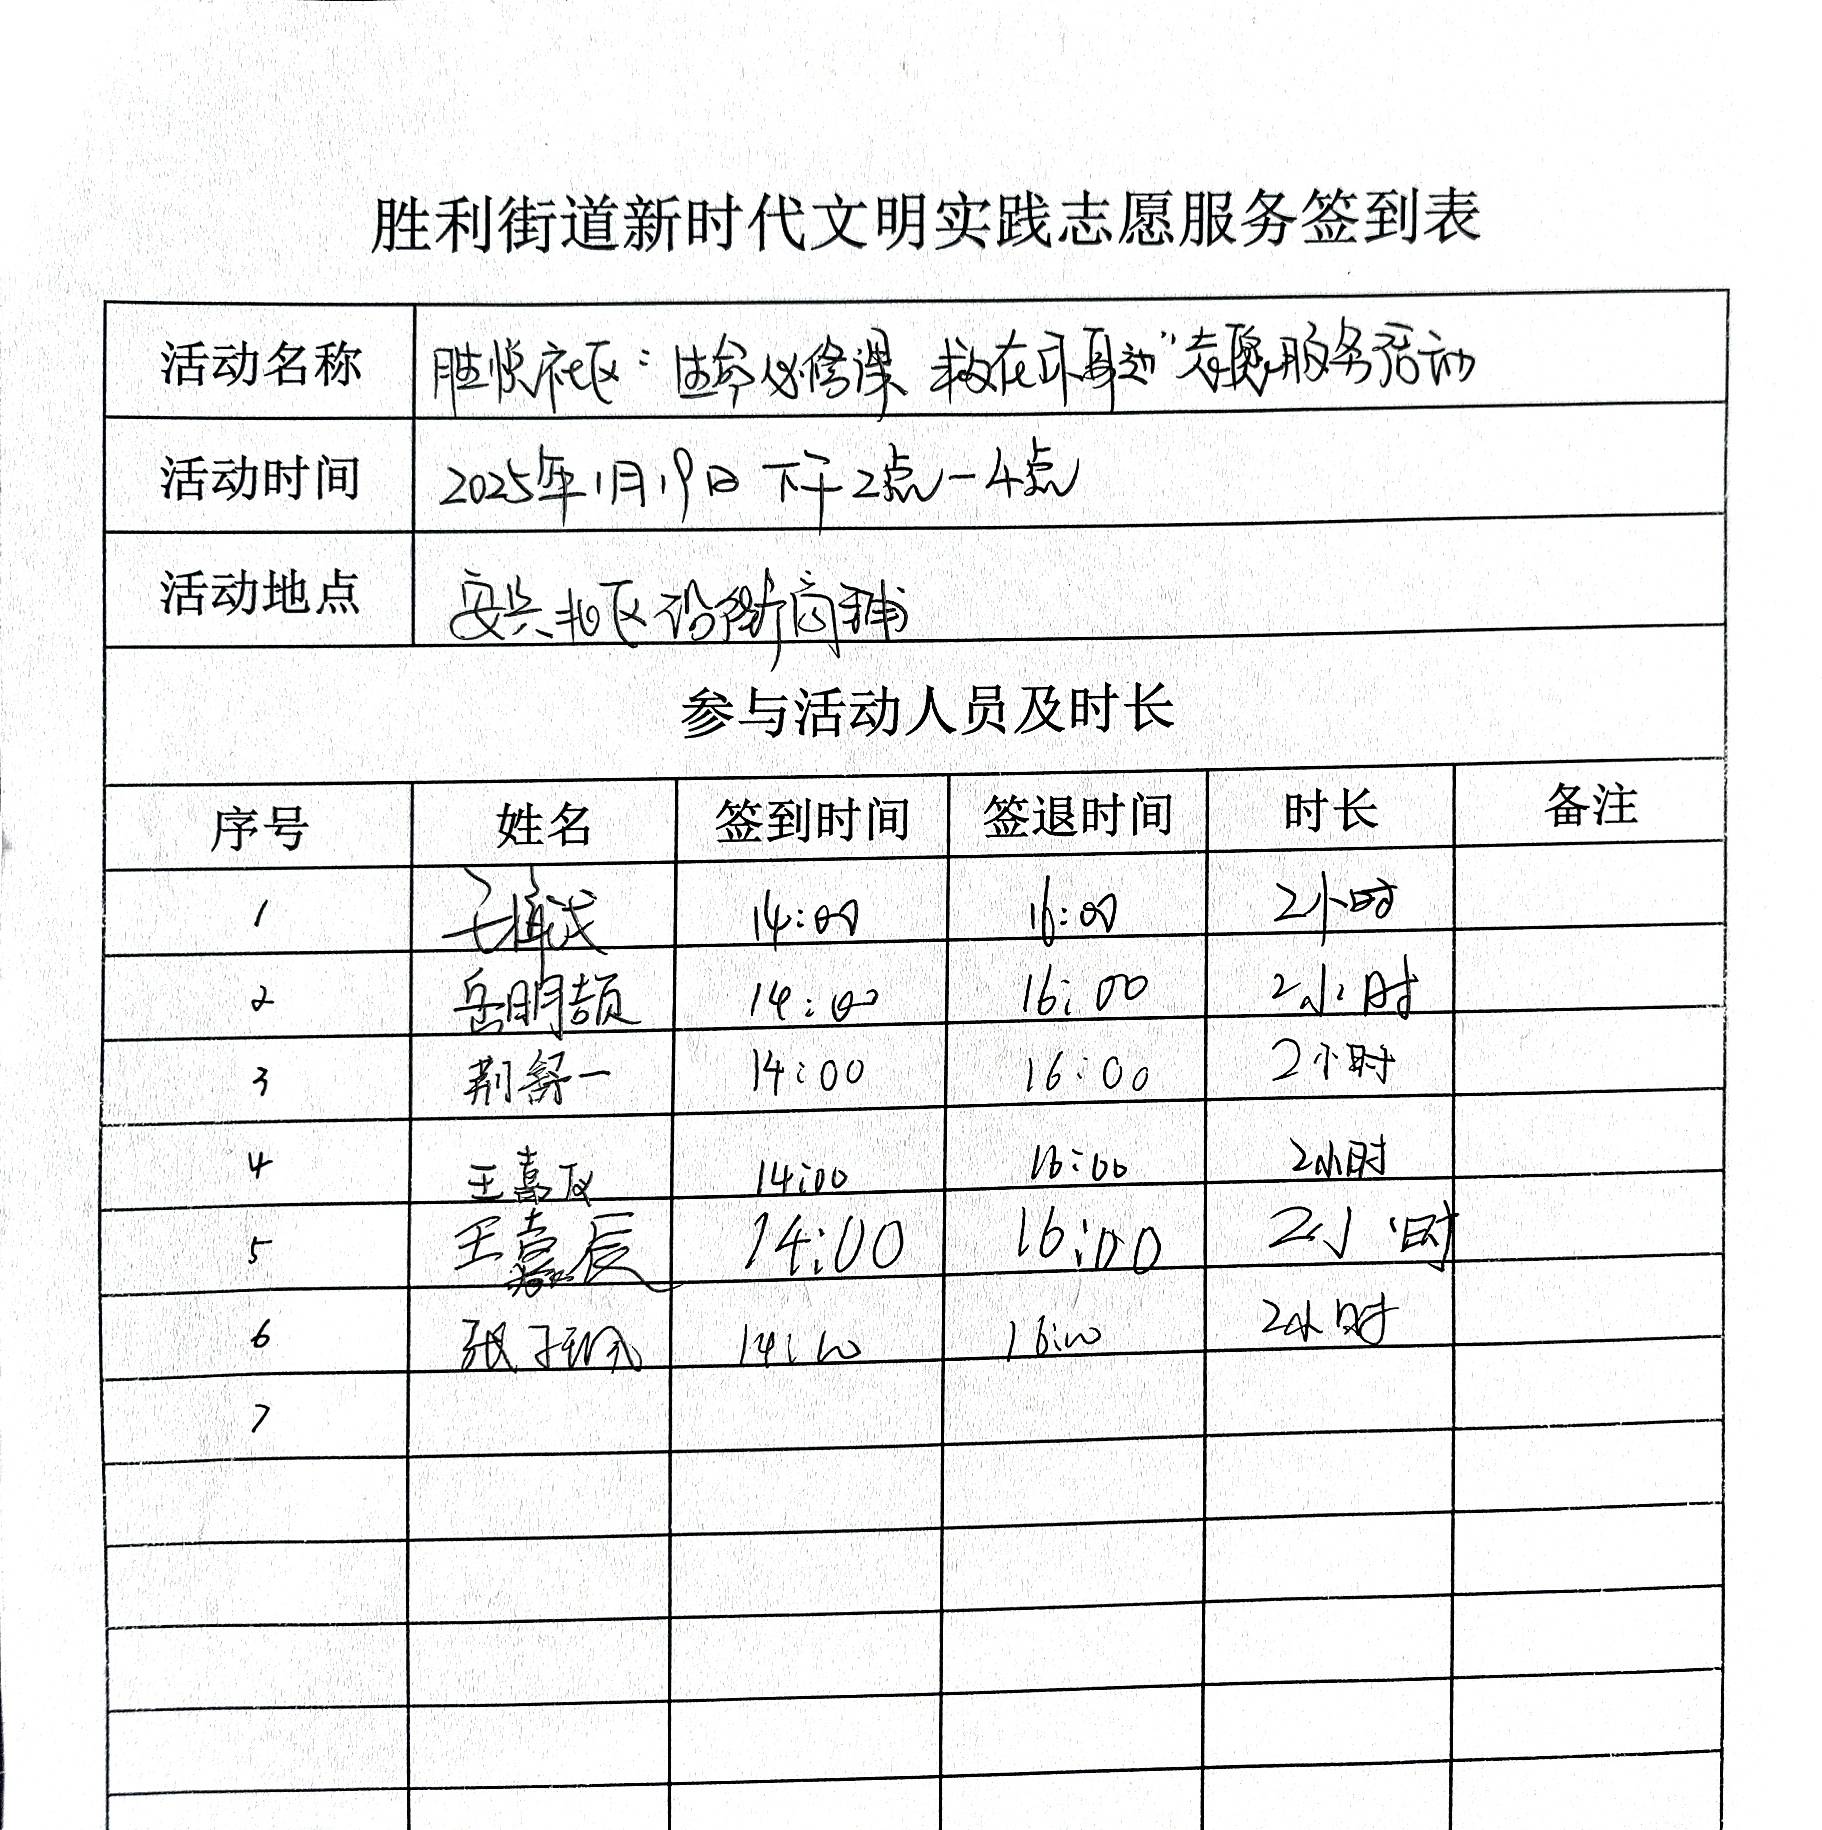 胜利街道新时代文明实践志愿服务签到表
活动名称 胜悦社区“生命必修课 救在身边”志愿服务活动
活动时间 2025年1月19日 下午2点-4点
活动地点 安兴北区沿街商铺
参与活动人员及时长
序号 姓名 签到时间 签退时间 时长 备注
1 14:00 16:00 2小时
2 岳明颉 14:00 16:00 2小时
3 荆舒一 14:00 16:00 2小时
4 王嘉仪 14:00 16:00 2小时
5 王嘉辰 14:00 16:00 2小时
6 张子 14:00 16:00 2小时
7